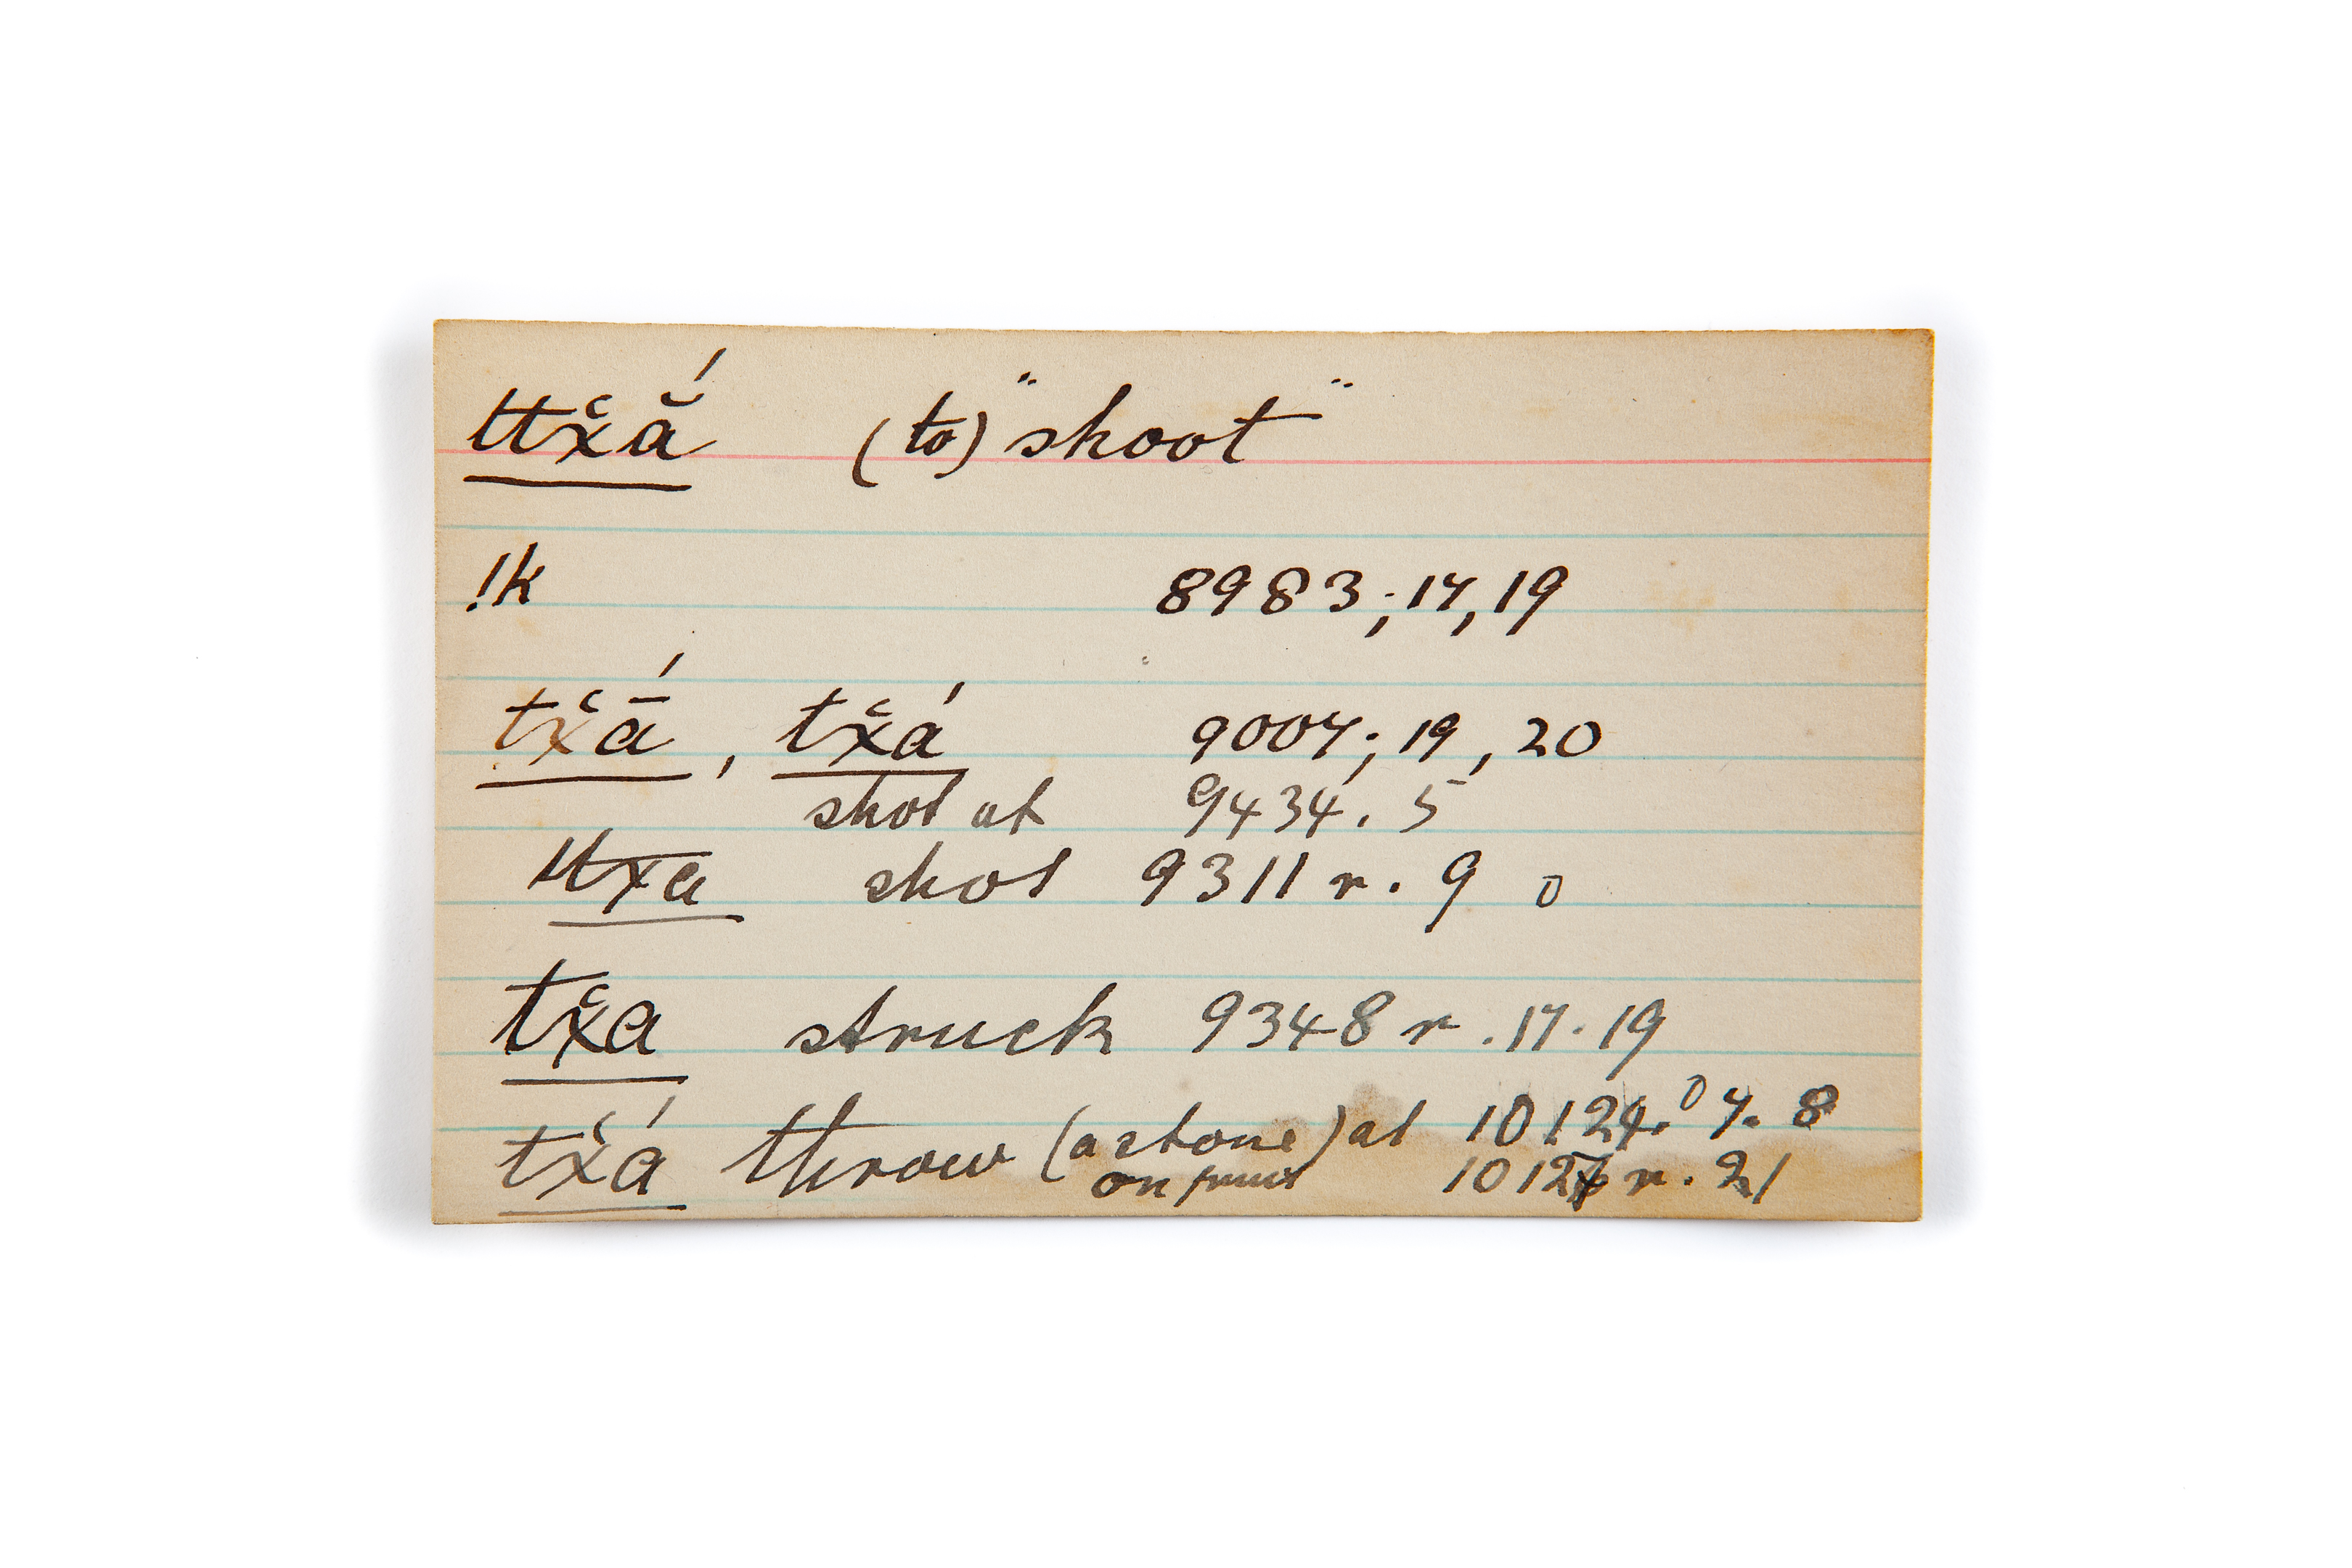 ttx̆ắ (to) "shoot"
!k 8983; 17, 19
tx̆ā́, tx̆á 9007; 19, 20
shot at 9434. 5
ttxa shot 9311 r. 9 0
tx̆a struck 9348 r. 17. 19
tx̆á throw (a stone) at 10124. 0 7. 8
on 10127 r. 21